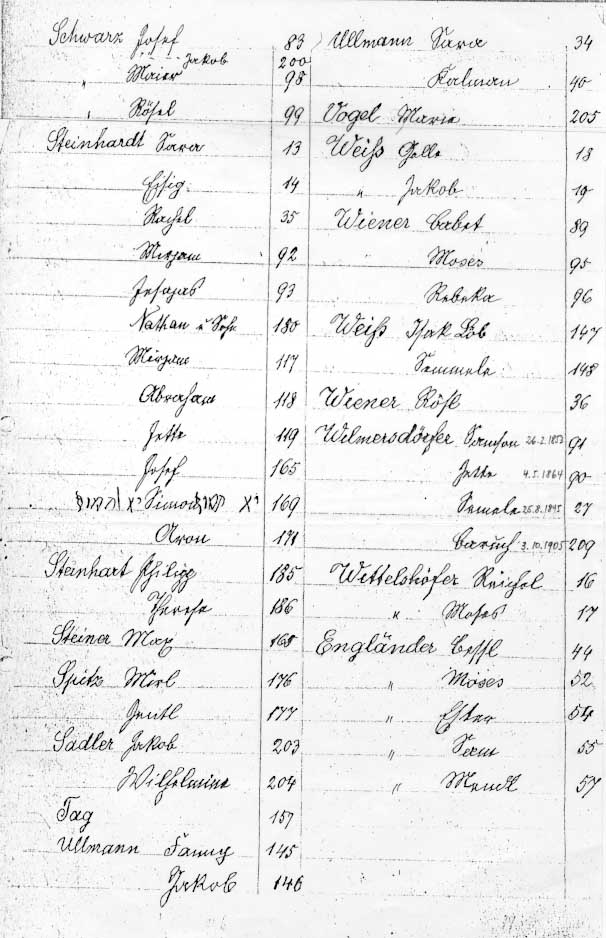 Schwarz Josef 83
Jakob 200
" Maier 98
" Rösel 99
Steinhardt Sara 13
Eisig 14
Rachel 35
Mirjam 92
Jesajas 93
Nathan u Sohn 180
Mirjam 117
Abraham 118
Jette 119
Josef 165
Simon 169
Aron 171
Steinhart Philipp 185
Therese 186
Steiner Max 168
Spitz Mirl 176
Jentl 177
Sadler Jakob 203
Wilhelmine 204
Tag 157
Ullmann Fanny 145
Jakob 146
Ullmann Sara 34
Kalman 40
Vogel Marie 205
Weiß Gelle 18
" Jakob 19
Wiener Babet 89
Moses 95
Rebeka 96
Weiß Isak Löb 147
Semmele 148
Wiener Rösl 36
Wilmersdörfer Samson 26.2.1853 91
Jette 4.5.1864 90
Semele 25.8.1895 27
Baruch 3.10.1905 209
Wittelshöfer Reichel 16
" Moses 17
Engländer Bessl 44
" Moses 52
" Ester 54
" Sam 55
" Mendl 57